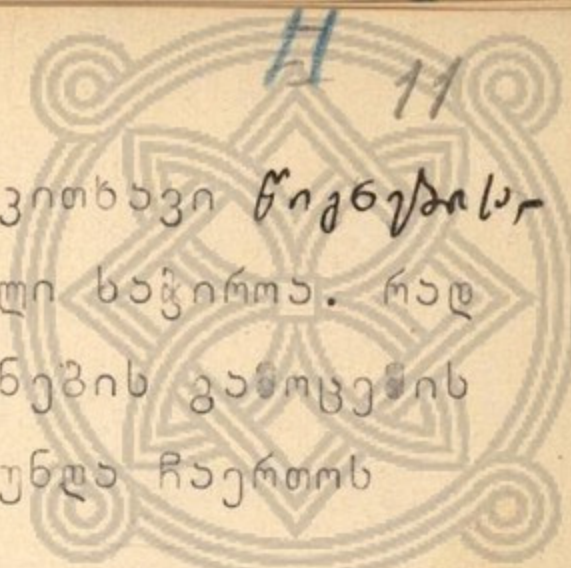 11
ვითხავი წიგნების
ლი საჭიროა. რად
ნების გამოცემის
უნდა ჩაერთოს